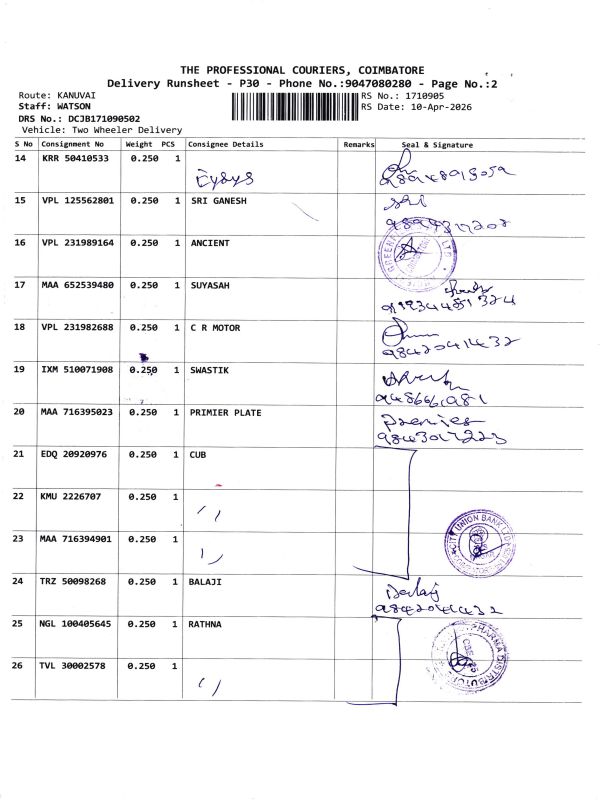 THE PROFESSIONAL COURIERS, COIMBATORE
Delivery Runsheet - P30 - Phone No.:9047080280 - Page No.:2
Route: KANUVAI
Staff: WATSON
DRS No.: DCJB171090502
Vehicle: Two Wheeler Delivery
RS No.: 1710905
RS Date: 10-Apr-2026
S No Consignment No Weight PCS Consignee Details Remarks Seal & Signature
14 KRR 50410533 0.250 1
15 VPL 125562801 0.250 1 SRI GANESH
16 VPL 231989164 0.250 1 ANCIENT
17 MAA 652539480 0.250 1 SUYASAH
18 VPL 231982688 0.250 1 C R MOTOR
9842041432
19 IXM 510071908 0.250 1 SWASTIK
20 MAA 716395023 0.250 1 PRIMIER PLATE
Premier
9843017223
21 EDQ 20920976 0.250 1 CUB
22 KMU 2226707 0.250 1
〃
23 MAA 716394901 0.250 1
〃
CITY UNION BANK LTD
24 TRZ 50098268 0.250 1 BALAJI
Balaji
9842041432
25 NGL 100405645 0.250 1 RATHNA
26 TVL 30002578 0.250 1
〃
PHARMA DISTRIBUTORS